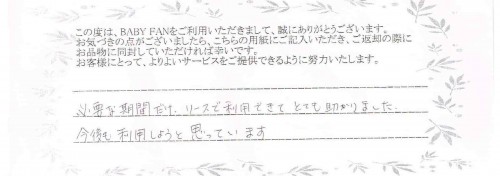 この度は、BABY FANをご利用いただきまして、誠にありがとうございます。
お気づきの点がございましたら、こちらの用紙にご記入いただき、ご返却の際に
お品物に同封していただければ幸いです。
お客様にとって、よりよいサービスをご提供できるように努力いたします。
必要な期間だけ、リースで利用できて とても助かりました。
今後も利用しようと思っています